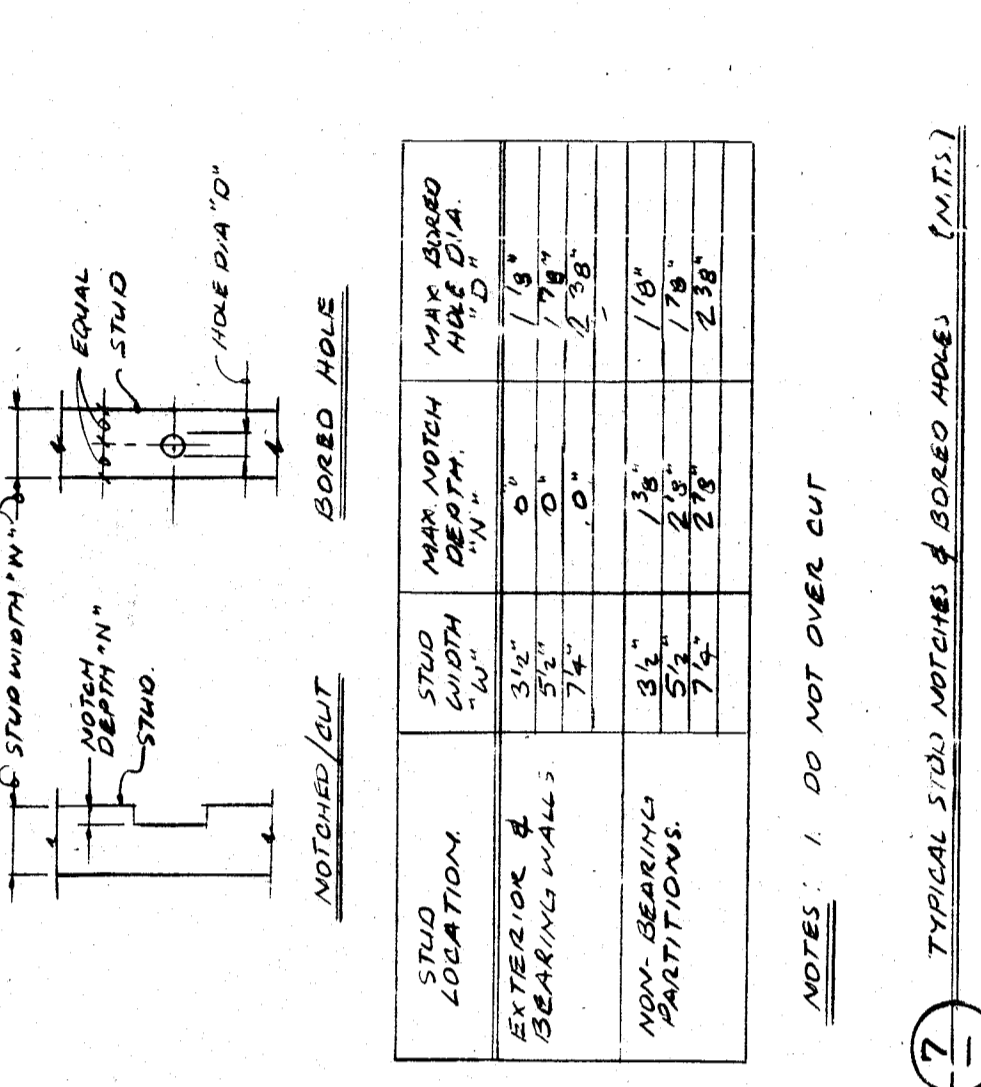 STUD WIDTH "W"
NOTCH
DEPTH "N"
STUD.
NOTCHED/CUT
EQUAL
STUD
HOLE DIA "D"
BORED HOLE
STUD LOCATION. STUD WIDTH "W" MAX. NOTCH DEPTH. "N" MAX BORED HOLE DIA. "D"
EXTERIOR & 3 1/2" 0" 1 1/8"
BEARING WALLS. 5 1/2" 0" 1 7/8"
7 1/4" 0" 2 3/8"
NON-BEARING 3 1/2" 1 3/8" 1 1/8"
PARTITIONS. 5 1/2" 2 1/8" 1 7/8"
7 1/4" 2 7/8" 2 3/8"
NOTES: 1. DO NOT OVER CUT
7
-
TYPICAL STUD NOTCHES & BORED HOLES (N.T.S.)